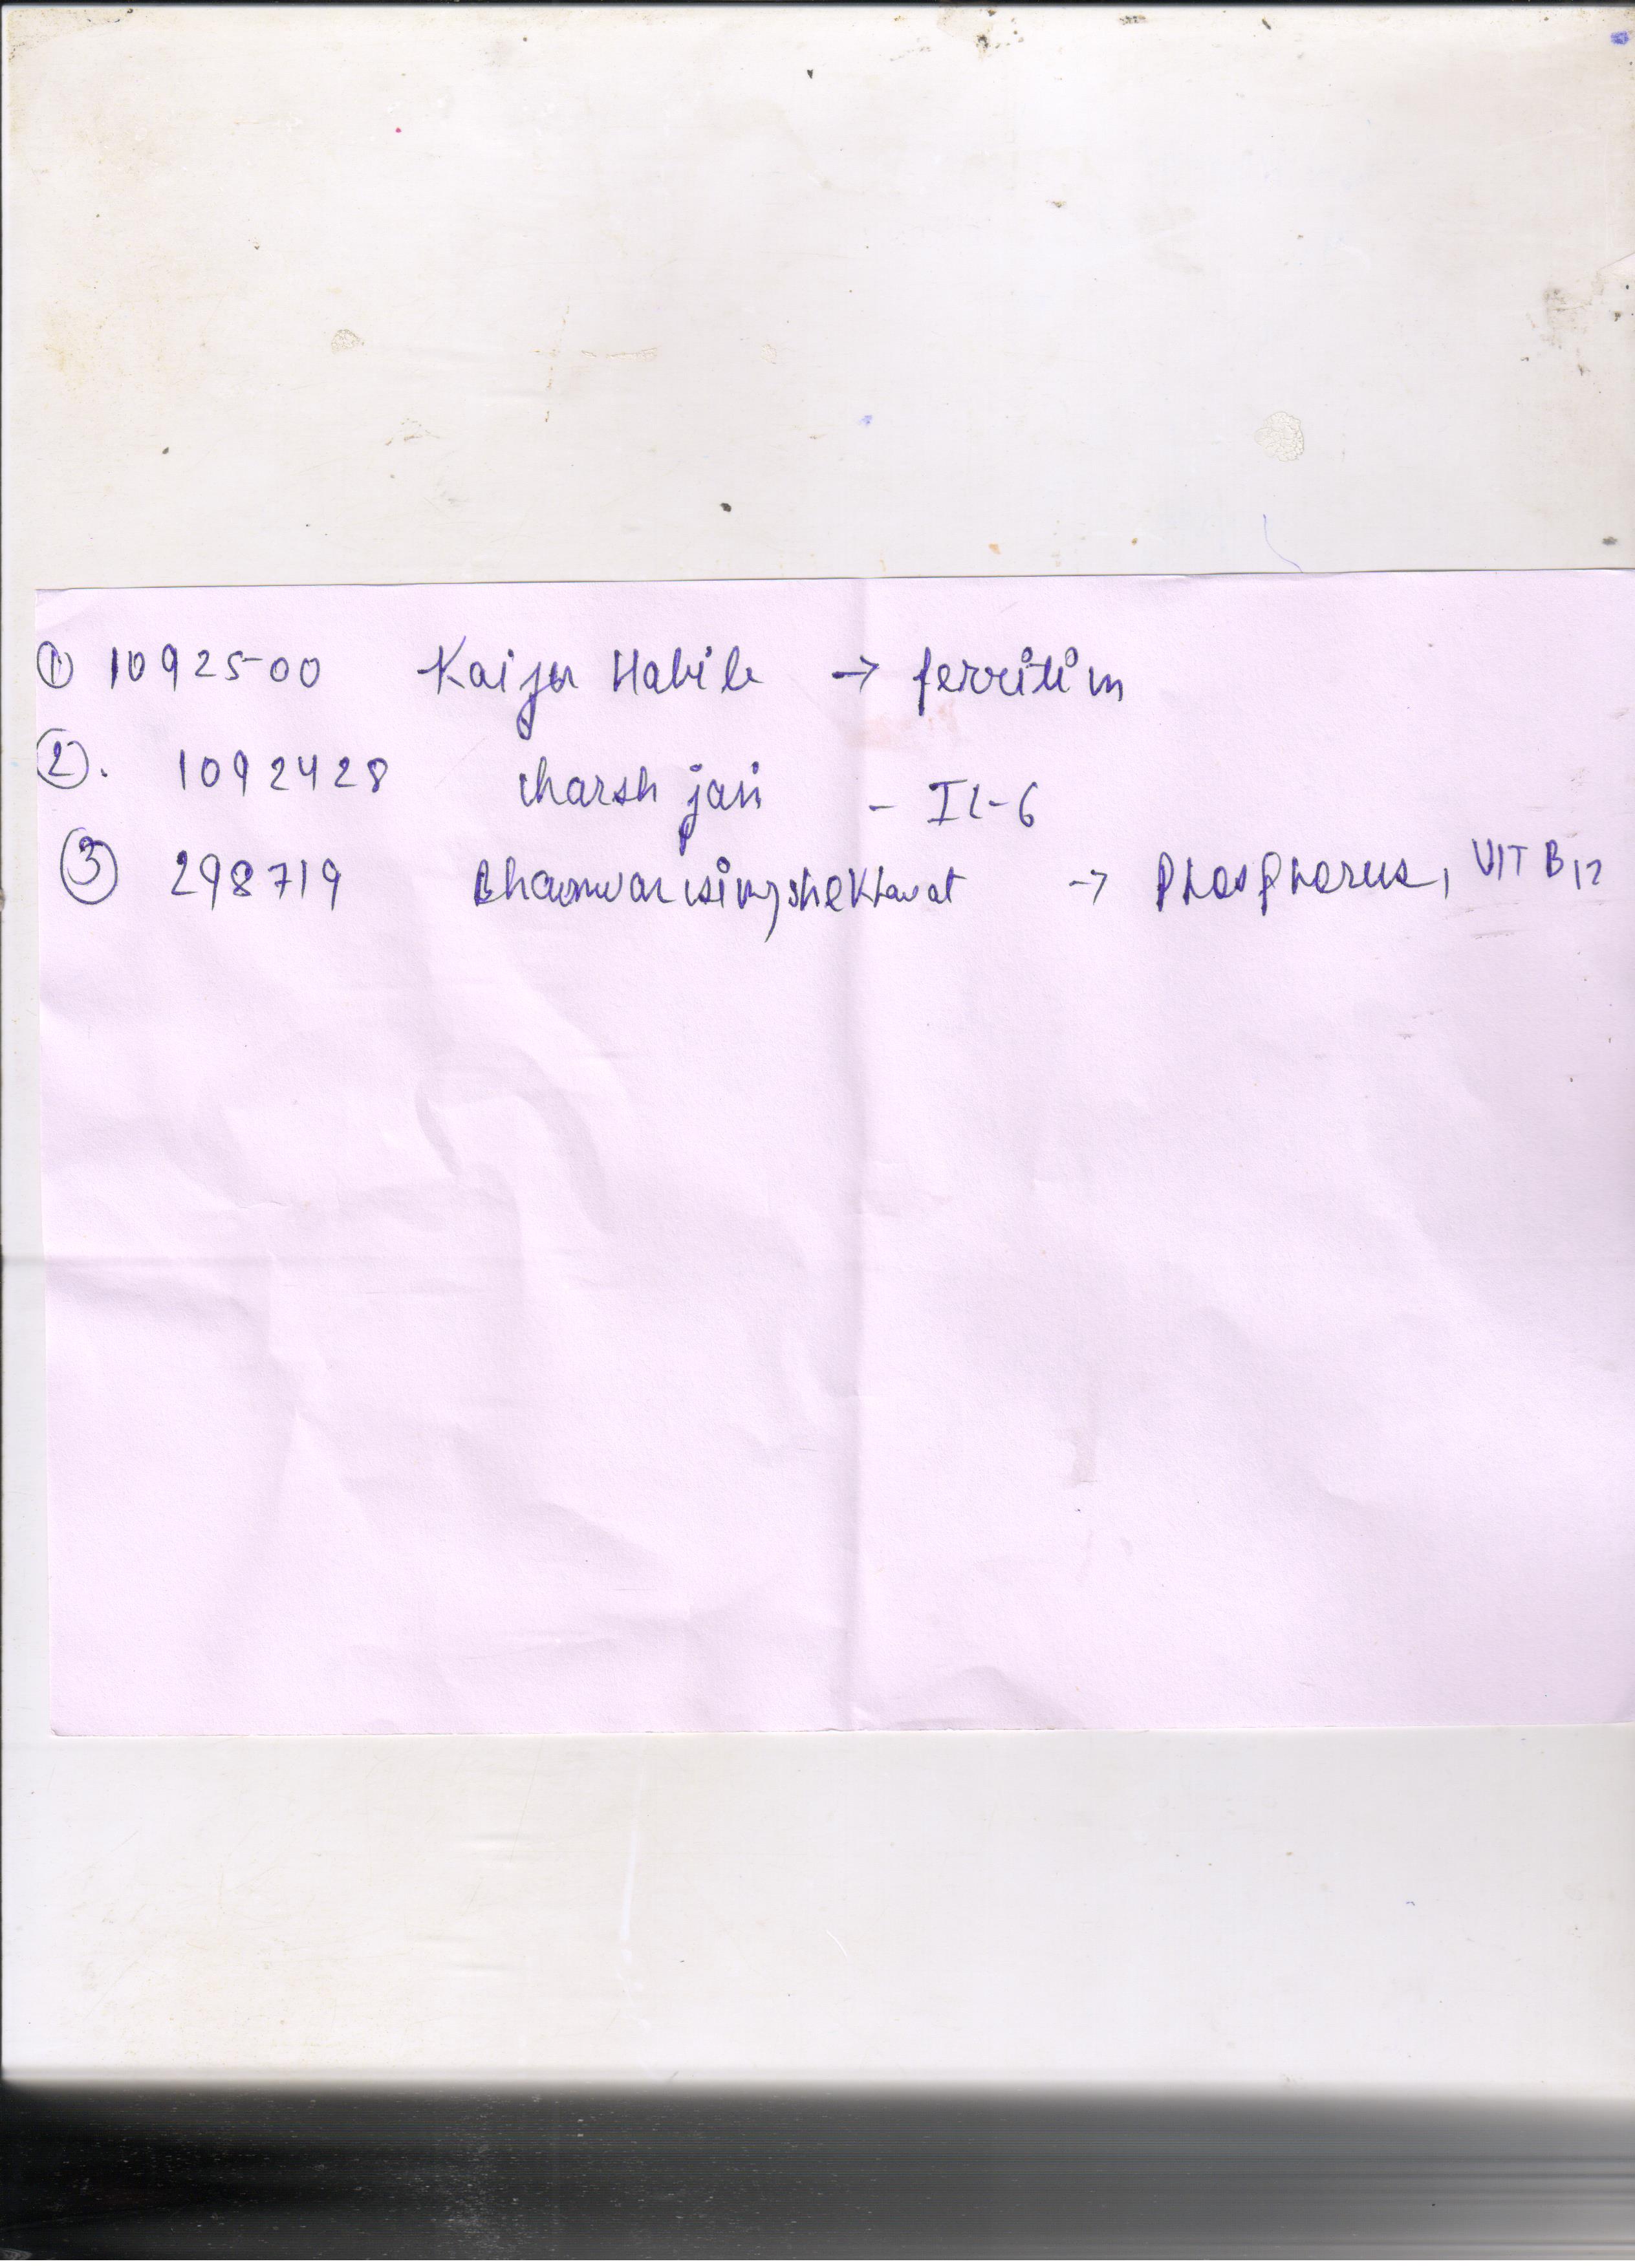 ① 1092500 Kaiser Habib → ferritin
②. 1092428 harsh jain - IL-6
③ 298719 Bhanwar singh shekhawat → Phosphorus, VIT B12